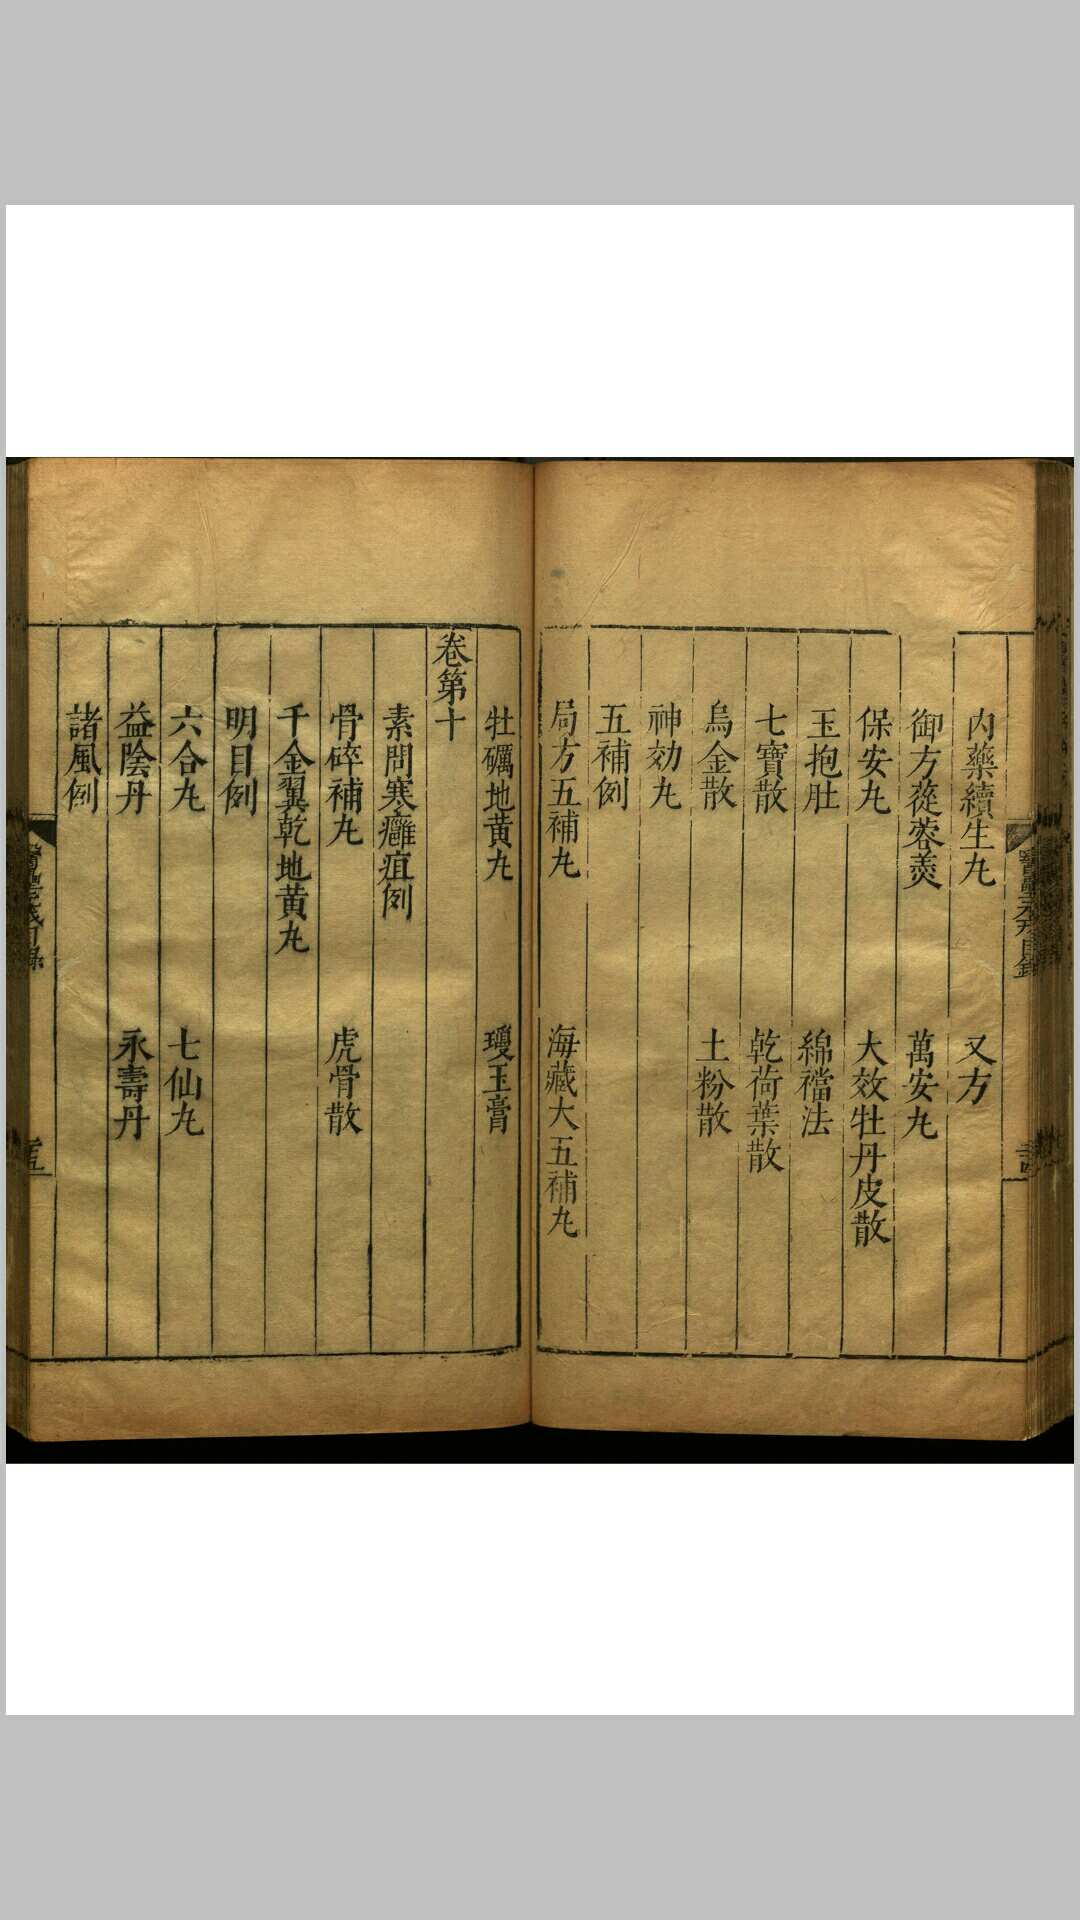 內藥續生丸 又方
御方蓯蓉羹 萬安丸
保安丸 大效牡丹皮散
玉抱肚 綿襠法
七寶散 乾荷葉散
烏金散 土粉散
神効丸
五補例
局方五補丸 海藏大五補丸
牡礪地黄丸 瓊玉膏
卷第十
素問寒癰疽例
骨碎補丸 虎骨散
千金翼乾地黄丸
明目例
六合丸 七仙丸
益陰丹 永壽丹
諸風例